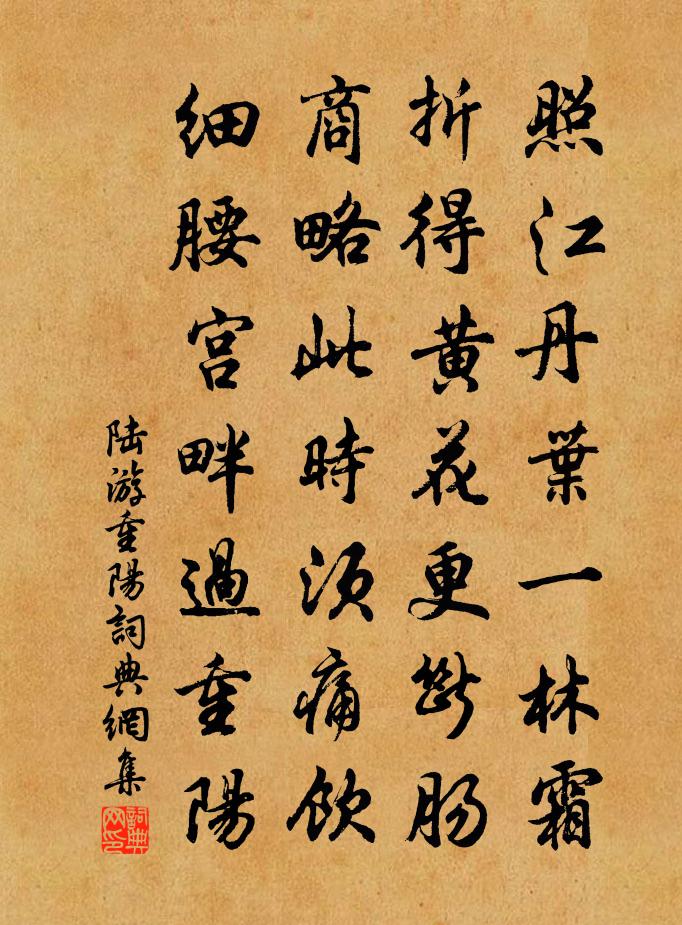 照江丹葉一林霜
折得黄花更斷肠
商略此時須痛飲
细腰宫畔過重陽
陆游重陽詞典網集
詞典网印